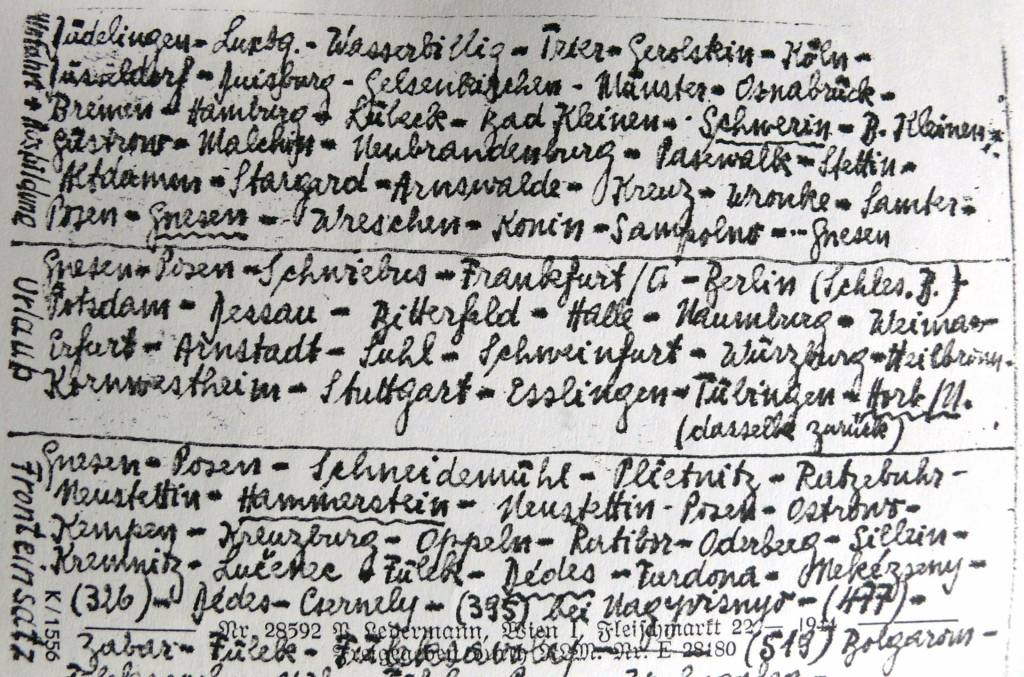 Wehrfahrt + Ausbildung
Düdelingen - Luxbg. - Wasserbillig - Trier - Gerolstein - Köln -
Düsseldorf - Duisburg - Gelsenkirchen - Münster - Osnabrück -
Bremen - Hamburg - Lübeck - Bad Kleinen - Schwerin - B. Kleinen -
Güstrow - Malchin - Neubrandenburg - Pasewalk - Stettin -
Altdamm - Stargard - Arnswalde - Kreuz - Wronke - Samter -
Posen - Gnesen - Wreschen - Konin - Sampolno - Gnesen
Urlaub
Gnesen - Posen - Schwiebus - Frankfurt/O - Berlin (Schles. B.) -
Potsdam - Dessau - Bitterfeld - Halle - Naumburg - Weimar -
Erfurt - Arnstadt - Suhl - Schweinfurt - Würzburg - Heilbronn -
Kornwestheim - Stuttgart - Esslingen - Tübingen - Horb/N.
(dasselbe zurück)
Fronteinsatz
Gnesen - Posen - Schneidemühl - Plietnitz - Ratzebuhr -
Neustettin - Hammerstein - Neustettin - Posen - Ostrowo -
Kempen - Kreuzburg - Oppeln - Ratibor - Oderberg - Sillein -
Kremnitz - Lučenec - Fülek - Dédes - Furdona - Mekézseny -
(326) - Dédes - Csernely - (395) bei Nagyvisnyo - (477) -
K/1556
Nr. 28592 P. Ledermann, Wien 1, Fleischmarkt 22 - 1944
Zabar - Fülek - (519) Bolgarom -
Nr. E 28180